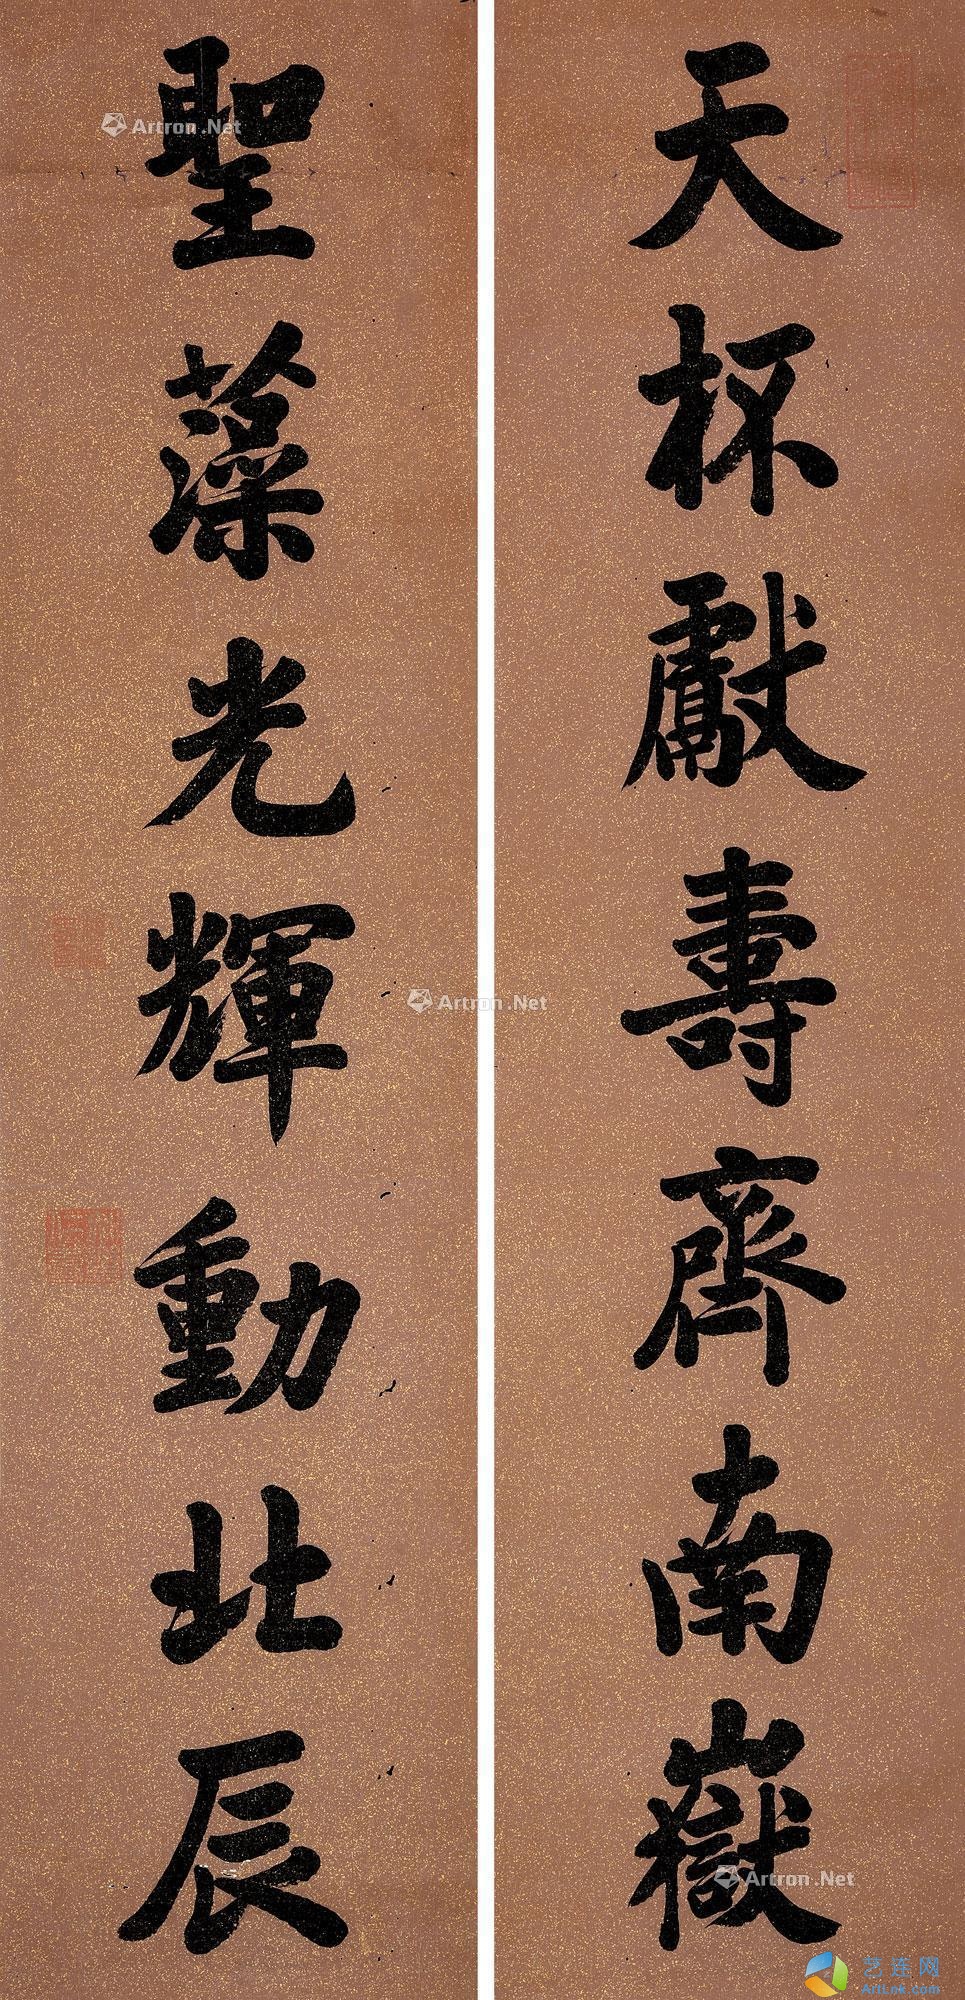 天杯獻壽齊南嶽
聖藻光輝動北辰
Artron.Net
Artron.Net
Artron.Net
艺连网
ArtLnk.com